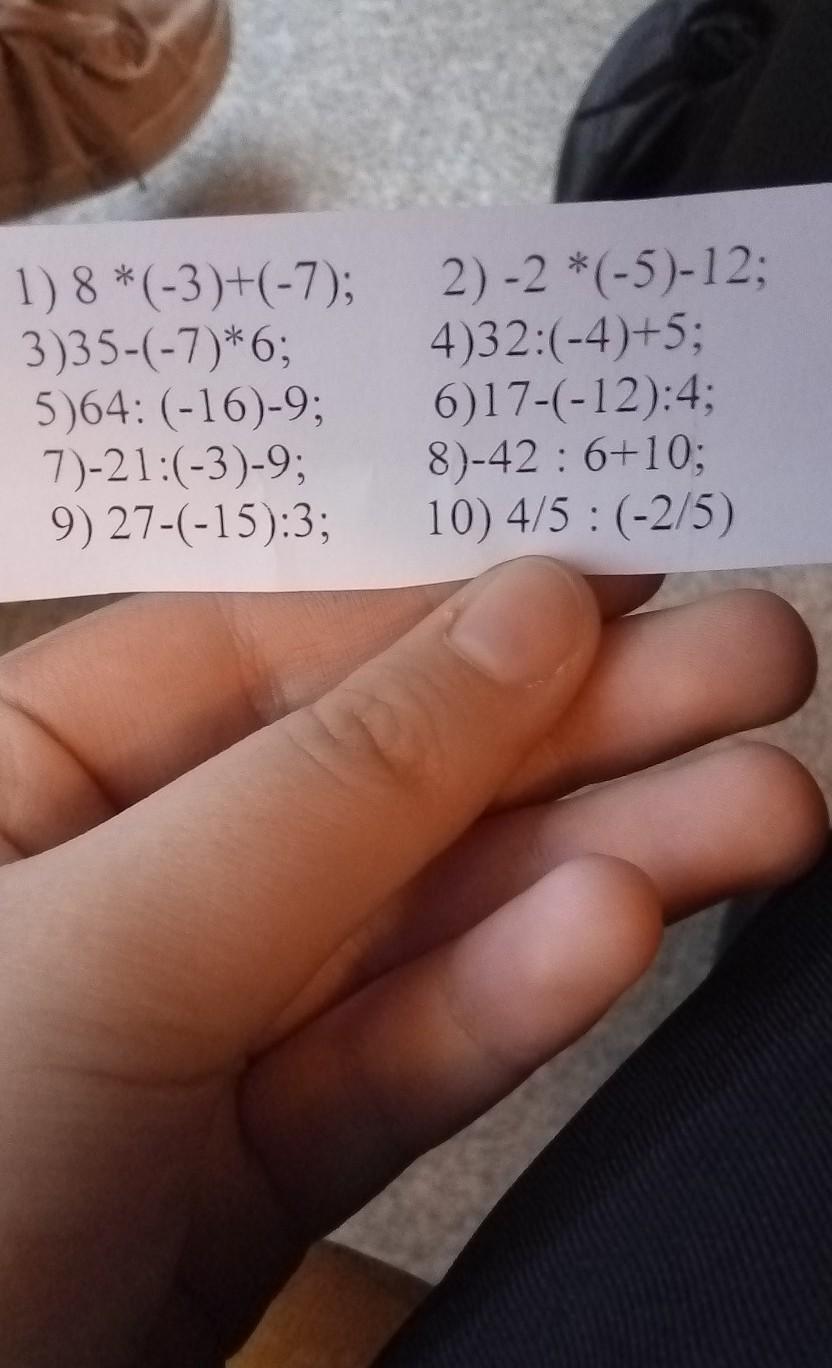 1) 8 *(-3)+(-7); 2) -2 *(-5)-12;
3)35-(-7)*6; 4)32:(-4)+5;
5)64: (-16)-9; 6)17-(-12):4;
7)-21:(-3)-9; 8)-42 : 6+10;
9) 27-(-15):3; 10) 4/5 : (-2/5)